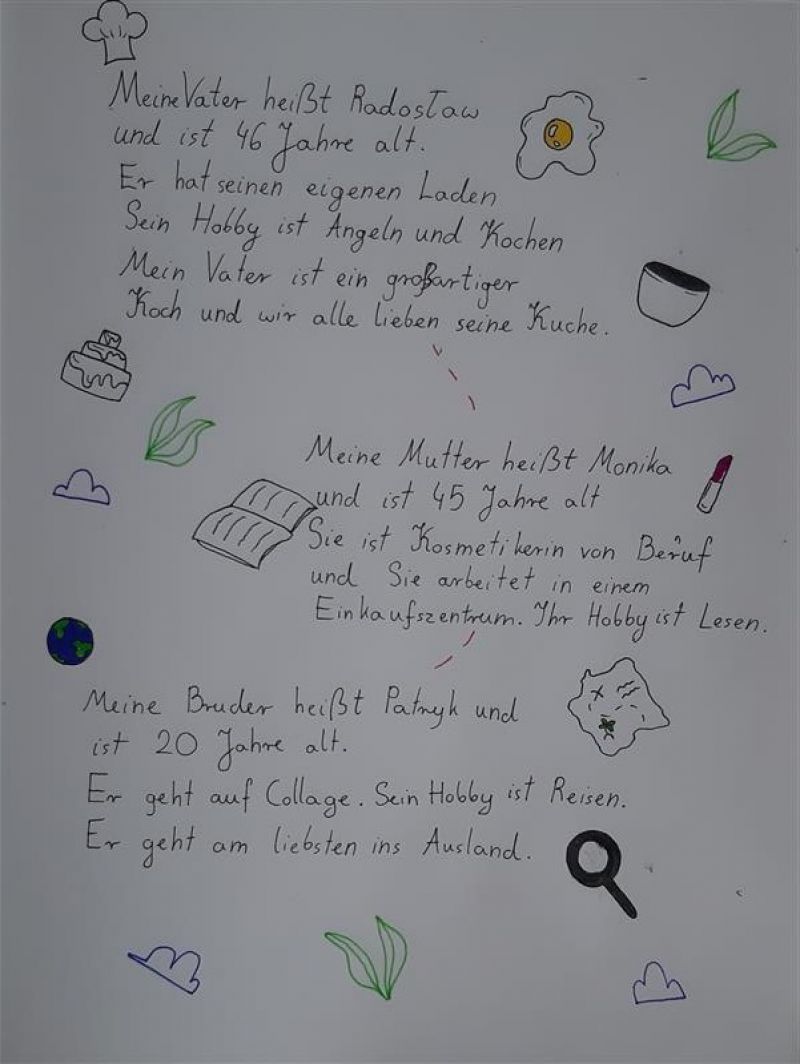 Meine Vater heißt Radosław
und ist 46 Jahre alt.
Er hat seinen eigenen Laden
Sein Hobby ist Angeln und Kochen
Mein Vater ist ein großartiger
Koch und wir alle lieben seine Kuche.
Meine Mutter heißt Monika
und ist 45 Jahre alt
Sie ist Kosmetikerin von Beruf
und Sie arbeitet in einem
Einkaufszentrum. Ihr Hobby ist Lesen.
Meine Bruder heißt Patryk und
ist 20 Jahre alt.
Er geht auf Collage. Sein Hobby ist Reisen.
Er geht am liebsten ins Ausland.